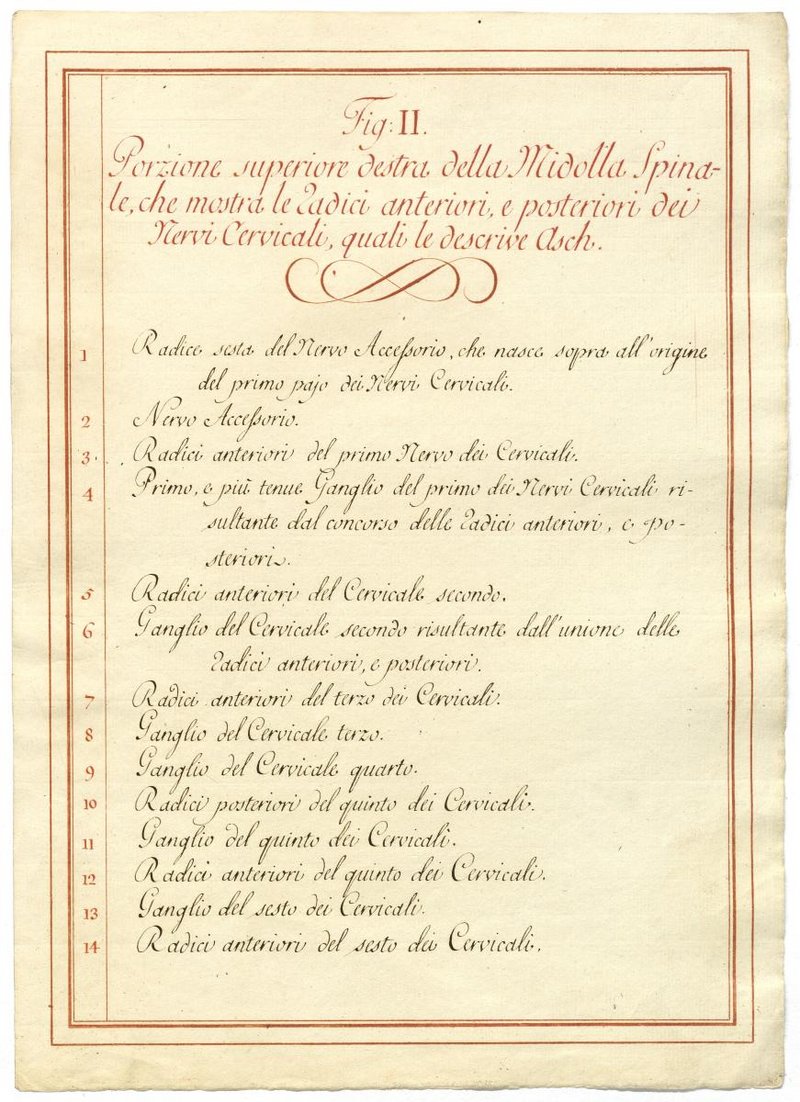 Fig: II.
Porzione superiore destra della Midolla Spina-
le, che mostra le Radici anteriori, e posteriori dei
Nervi Cervicali, quali le descrive Asch.
1 Radice sesta del Nervo Accessorio, che nasce sopra all'origine
del primo pajo dei Nervi Cervicali.
2 Nervo Accessorio.
3. Radici anteriori del primo Nervo dei Cervicali.
4 Primo, e più tenue Ganglio del primo dei Nervi Cervicali ri-
sultante dal concorso delle Radici anteriori, e po-
steriori.
5 Radici anteriori del Cervicale secondo.
6 Ganglio del Cervicale secondo risultante dall'unione delle
Radici anteriori, e posteriori.
7 Radici anteriori del terzo dei Cervicali.
8 Ganglio del Cervicale terzo.
9 Ganglio del Cervicale quarto.
10 Radici posteriori del quinto dei Cervicali.
11 Ganglio del quinto dei Cervicali.
12 Radici anteriori del quinto dei Cervicali.
13 Ganglio del sesto dei Cervicali.
14 Radici anteriori del sesto dei Cervicali.